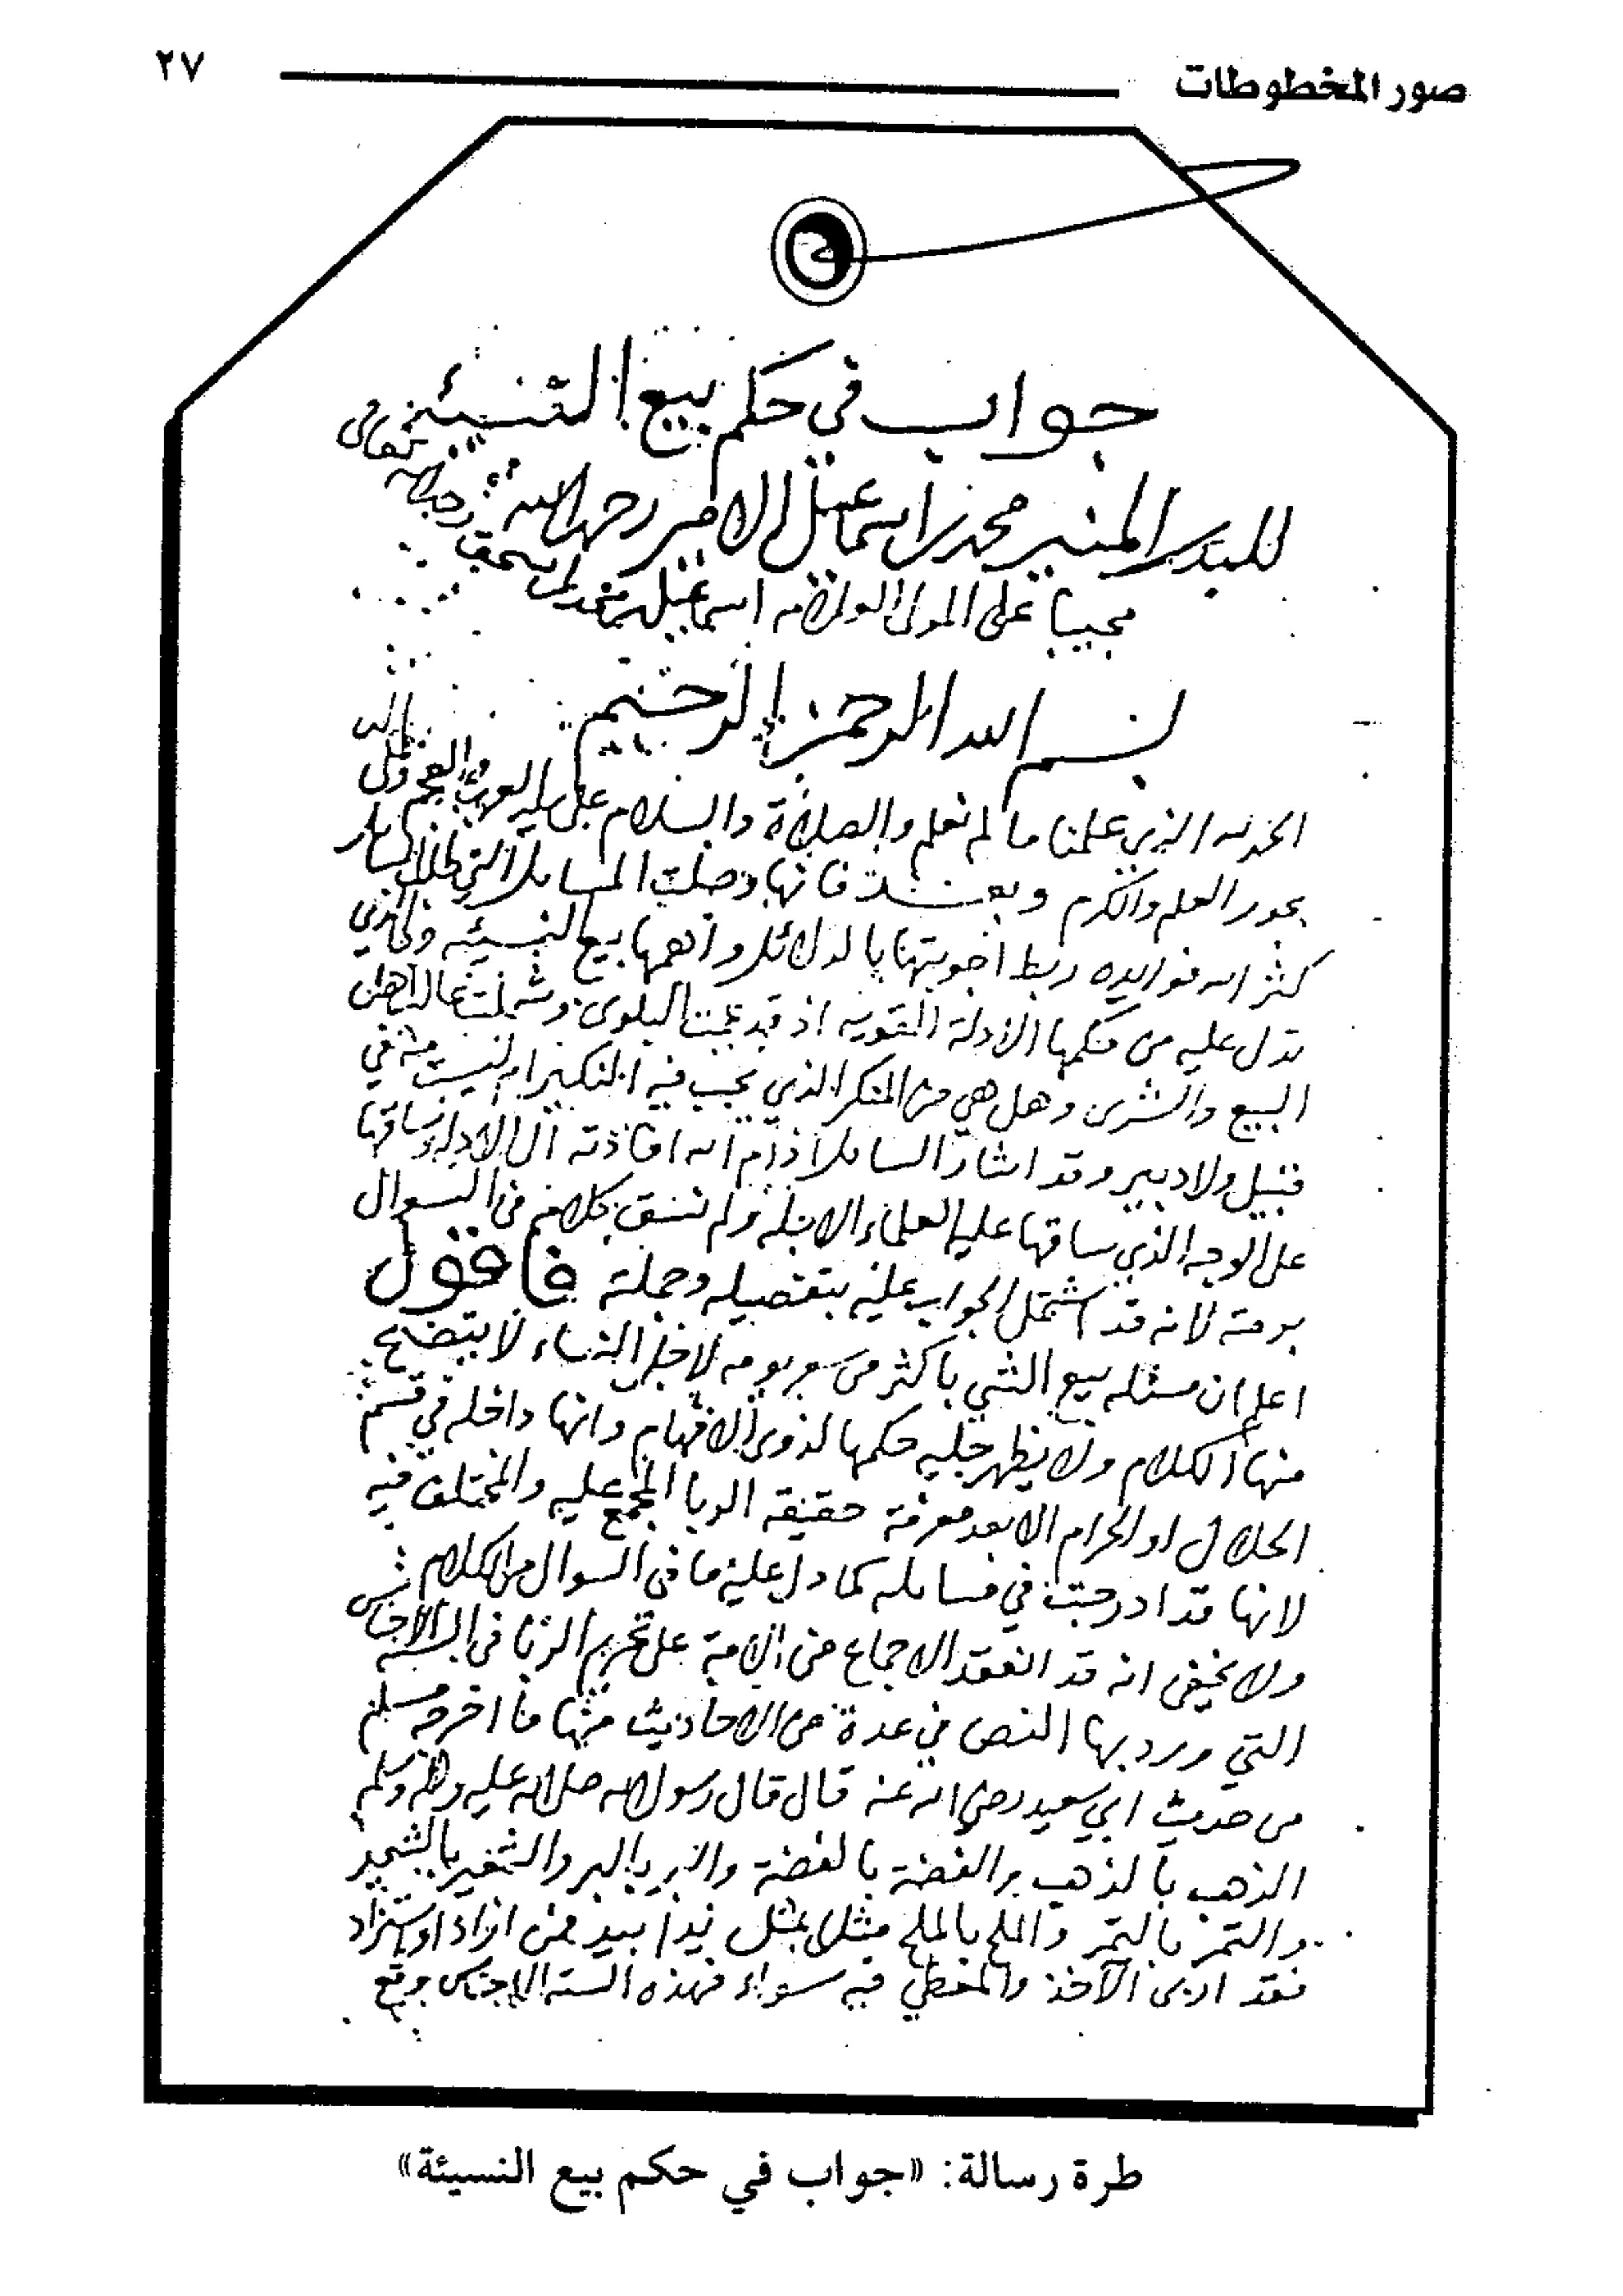 صور المخطوطات
٢٧
جواب في حكم بيع النسيئة
للبدر المنير محمد بن اسماعيل الامير رحمه الله
مجيبا على المولى العلامه اسماعيل بن محمد بن اسحق رحمه الله تعالى
بسم الله الرحمن الرحيم
الحمد لله الذي علمنا ما لم نعلم والصلاة والسلام على سيد العرب والعجم وعلى اله
بحور العلم والكرم وبعد فانها وصلت المسايل التي طلب السايل
كثر الله فوايده ربط اجوبتها بالدلائل واهمها بيع النسيئه وما الذي
تدل عليه من حكمها الادلة القويه اذ قد عمت البلوى وشملت غالب اهل
البيع والشرى وهل هي من المنكر الذي يجب فيه النكير ام ليست منه في
قبيل ولا دبير وقد اشار السايل ادام الله افادته الى الادله وساقها
على الوجه الذي ساقها عليه العلماء الاجله ولم نسق كلامه في السوال
برمته لانه قد اشتمل الجواب عليه بتفصيله وجملته فاقول
اعلم ان مسئله بيع الشي باكثر من سعر يومه لاجل النساء لا يتضح
منها الكلام ولا يظهر جليه حكمها لذوي الافهام وانها داخله في قسم
الحلال او الحرام الا بعد معرفة حقيقه الربا المجمع عليه والمختلف فيه
لانها قد ادرجت في مسايله كما دل عليه ما في السوال من الكلام
ولا يخفى انه قد انعقد الاجماع من الامة على تحريم الربا في الستة الاجناس
التي ورد بها النص في عدة من الاحاديث منها ما اخرجه مسلم
من حديث ابي سعيد رضي الله عنه قال قال رسول الله صلى الله عليه واله وسلم
الذهب بالذهب والفضة بالفضة والبر بالبر والشعير بالشعير
والتمر بالتمر والملح بالملح مثلا بمثل يدا بيد فمن ازاد او استزاد
فقد اربى الآخذ والمعطي فيه سواء فهذه الستة الاجناس وقع
طرة رسالة: «جواب في حكم بيع النسيئة»